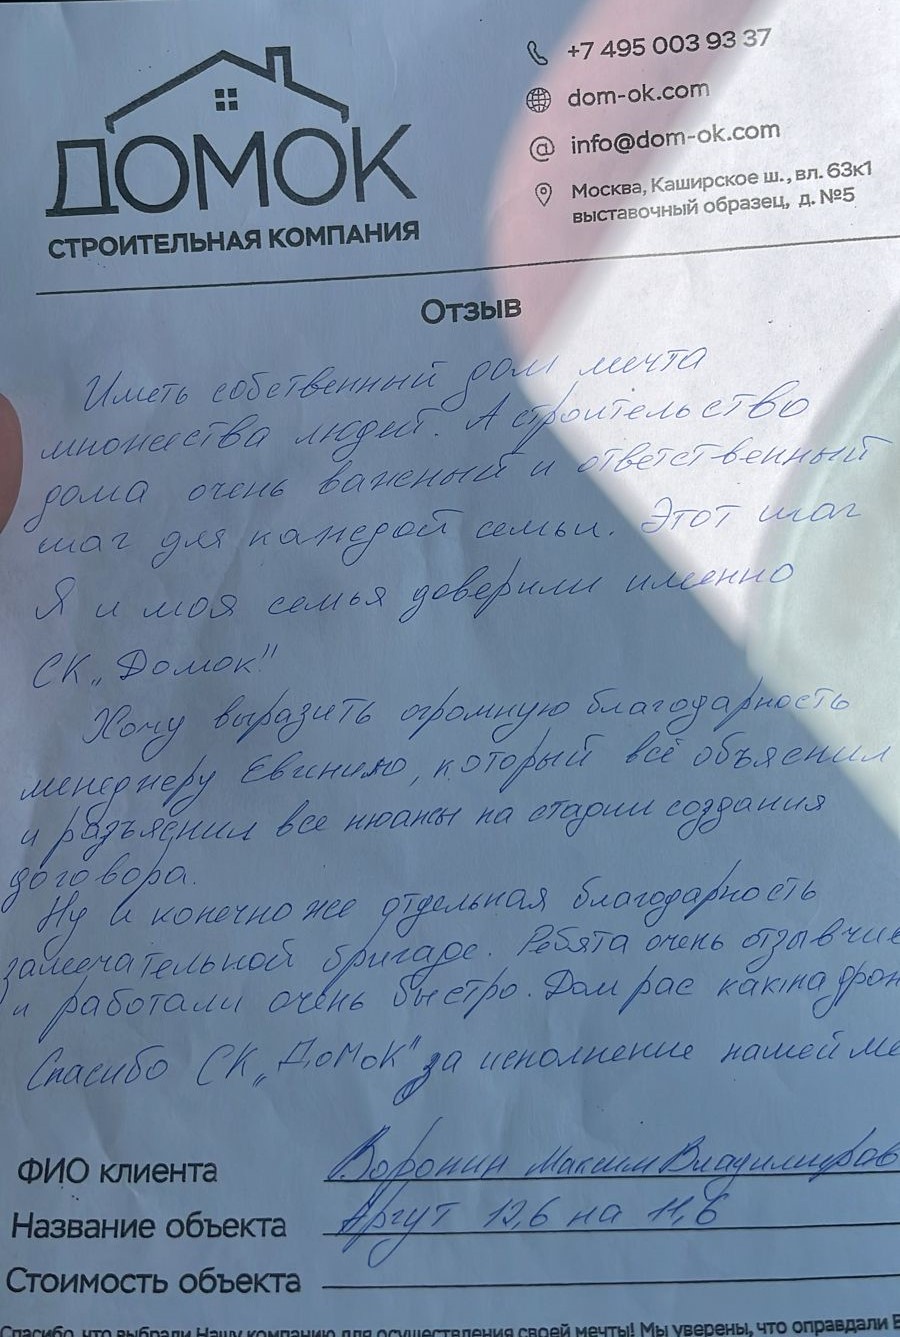 ДОМОК
СТРОИТЕЛЬНАЯ КОМПАНИЯ
+7 495 003 93 37
dom-ok.com
info@dom-ok.com
Москва, Каширское ш., вл. 63к1
выставочный образец, д. №5
Отзыв
Иметь собственный дом мечта
множества людей. А строительство
дома очень важный и ответственный
шаг для каждой семьи. Этот шаг
Я и моя семья доверили именно
СК „Домок"
Хочу выразить огромную благодарность
менеджеру Евгинию, который всё объяснил
и разъяснил все нюансы на стадии создания
договора.
Ну и конечно же отдельная благодарность
замечательной бригаде. Ребята очень отзывчив
и работали очень быстро. Дом рас как на дрож
Спасибо СК „ДоМоК" за исполнение нашей ме
ФИО клиента Воронин Максим Владимиров
Название объекта Аргут 12,6 на 11,6
Стоимость объекта
Спасибо, что выбрали Нашу компанию для осуществления своей мечты! Мы уверены, что оправдали В